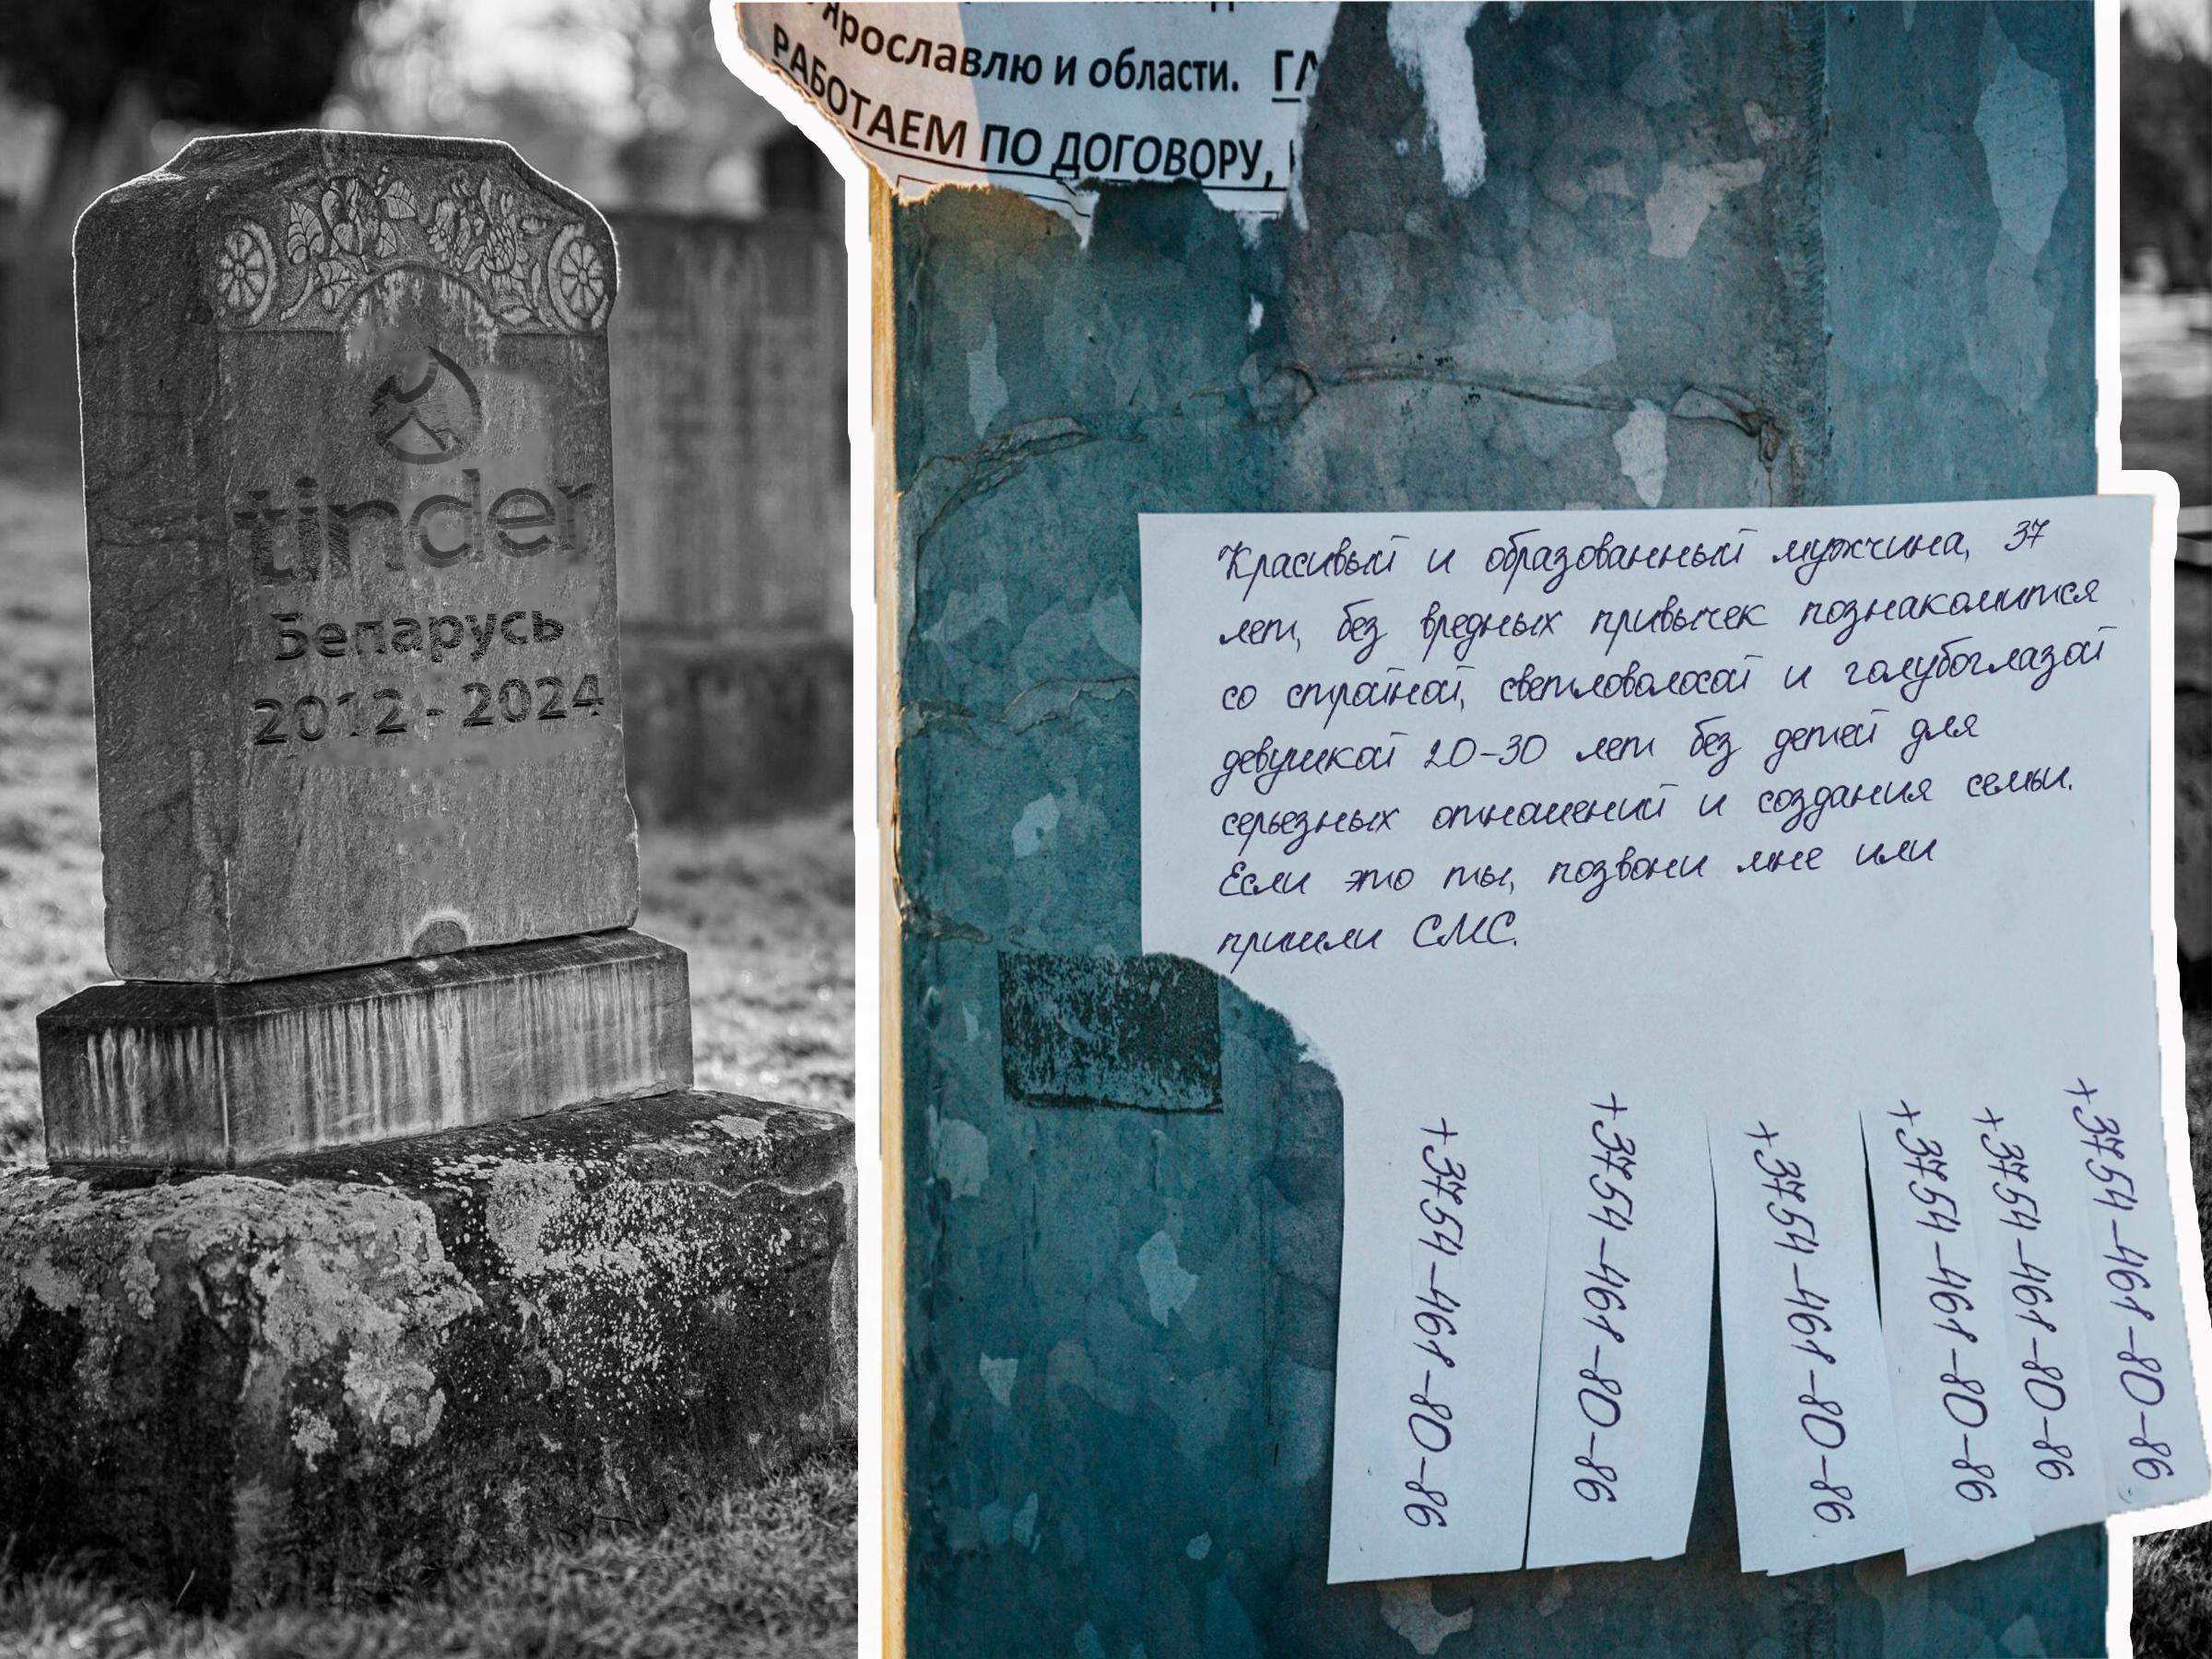 tinder
Беларусь
2012 - 2024
Ярославлю и области.
РАБОТАЕМ ПО ДОГОВОРУ,
Красивый и образованный мужчина, 37
лет, без вредных привычек познакомится
со стройной, светловолосой и голубоглазой
девушкой 20-30 лет без детей для
серьезных отношений и создания семьи.
Если это ты, позвони мне или
пришли СМС.
+3754-461-80-86
+3754-461-80-86
+3754-461-80-86
+3754-461-80-86
+3754-461-80-86
+3754-461-80-86